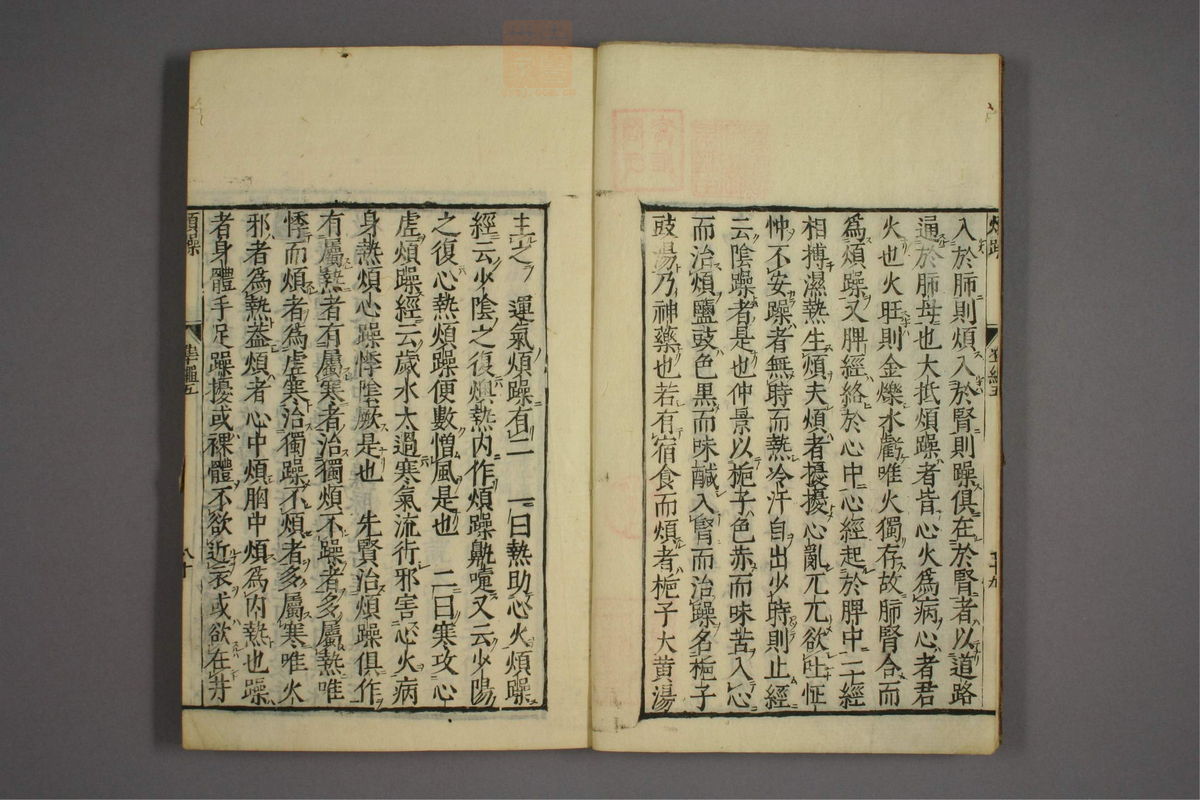 入於肺則煩入於腎則躁俱在於腎者以道路
通於肺母也大抵煩躁者皆心火為病心者君
火也火旺則金爍水虧唯火獨存故肺腎合而
為煩躁又脾經絡於心中心經起於脾中二經
相搏濕熱生煩夫煩者擾擾心亂兀兀欲吐怔
忡不安躁者無時而熱冷汗自出少時則止經
云陰躁者是也仲景以梔子色赤而味苦入心
而治煩鹽豉色黑而味鹹入腎而治躁名梔子
豉湯乃神藥也若有宿食而煩者梔子大黃湯
主之　運氣煩躁有二　一曰熱助心火煩躁
經云少陰之復燠熱內作煩躁鼽嚏又云少陽
之復心熱煩躁便數憎風是也　二曰寒攻心
虛煩躁經云歲水太過寒氣流行邪害心火病
身熱煩心躁悸陰厥是也　先賢治煩躁俱作
有屬熱者有屬寒者治獨煩不躁者多屬熱唯
悸而煩者為虛寒治獨躁不煩者多屬寒唯火
邪者為熱蓋煩者心中煩胸中煩為內熱也躁
者身體手足躁擾或裸體不欲近衣或欲在井
煩躁　準繩五　八十